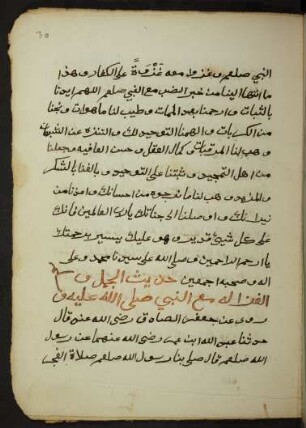 النبي صلعم وغزوا معه غزوة على الكفار وهذا
ما انتها الينا من خبر الضب مع النبي صلعم اللهم ايدنا
بالثبات وارحمنا بعد الممات وطيب لنا
من الكربات والهمنا التوحيد لك والتنزه عن الشبهات
وهب لنا وكمال العقل وحسن العافيه وجعلنا
من اهل التمجيد وثبتنا على التوحيد و بالشكر
والمزيد وهب لنا ما نرجوه من احسانك وامنا من
نيرانك واوصلنا الى جنانك يا رب العالمين فانك
على كل شيئ قدير وهو عليك يسير برحمتك
يا ارحم الراحمين وصلى الله على سيدنا محمد وعلى
اله وصحبه اجمعين حديث الجمل و
الغزاله مع النبي صلى الله عليه و
روى عن جعفر الصادق رضي الله عنه قال
حدثنا عبد الله ابن عمر رضي الله عنهما عن رسول
الله صلعم قال صلى بنا رسول الله صلعم صلاة الفجر